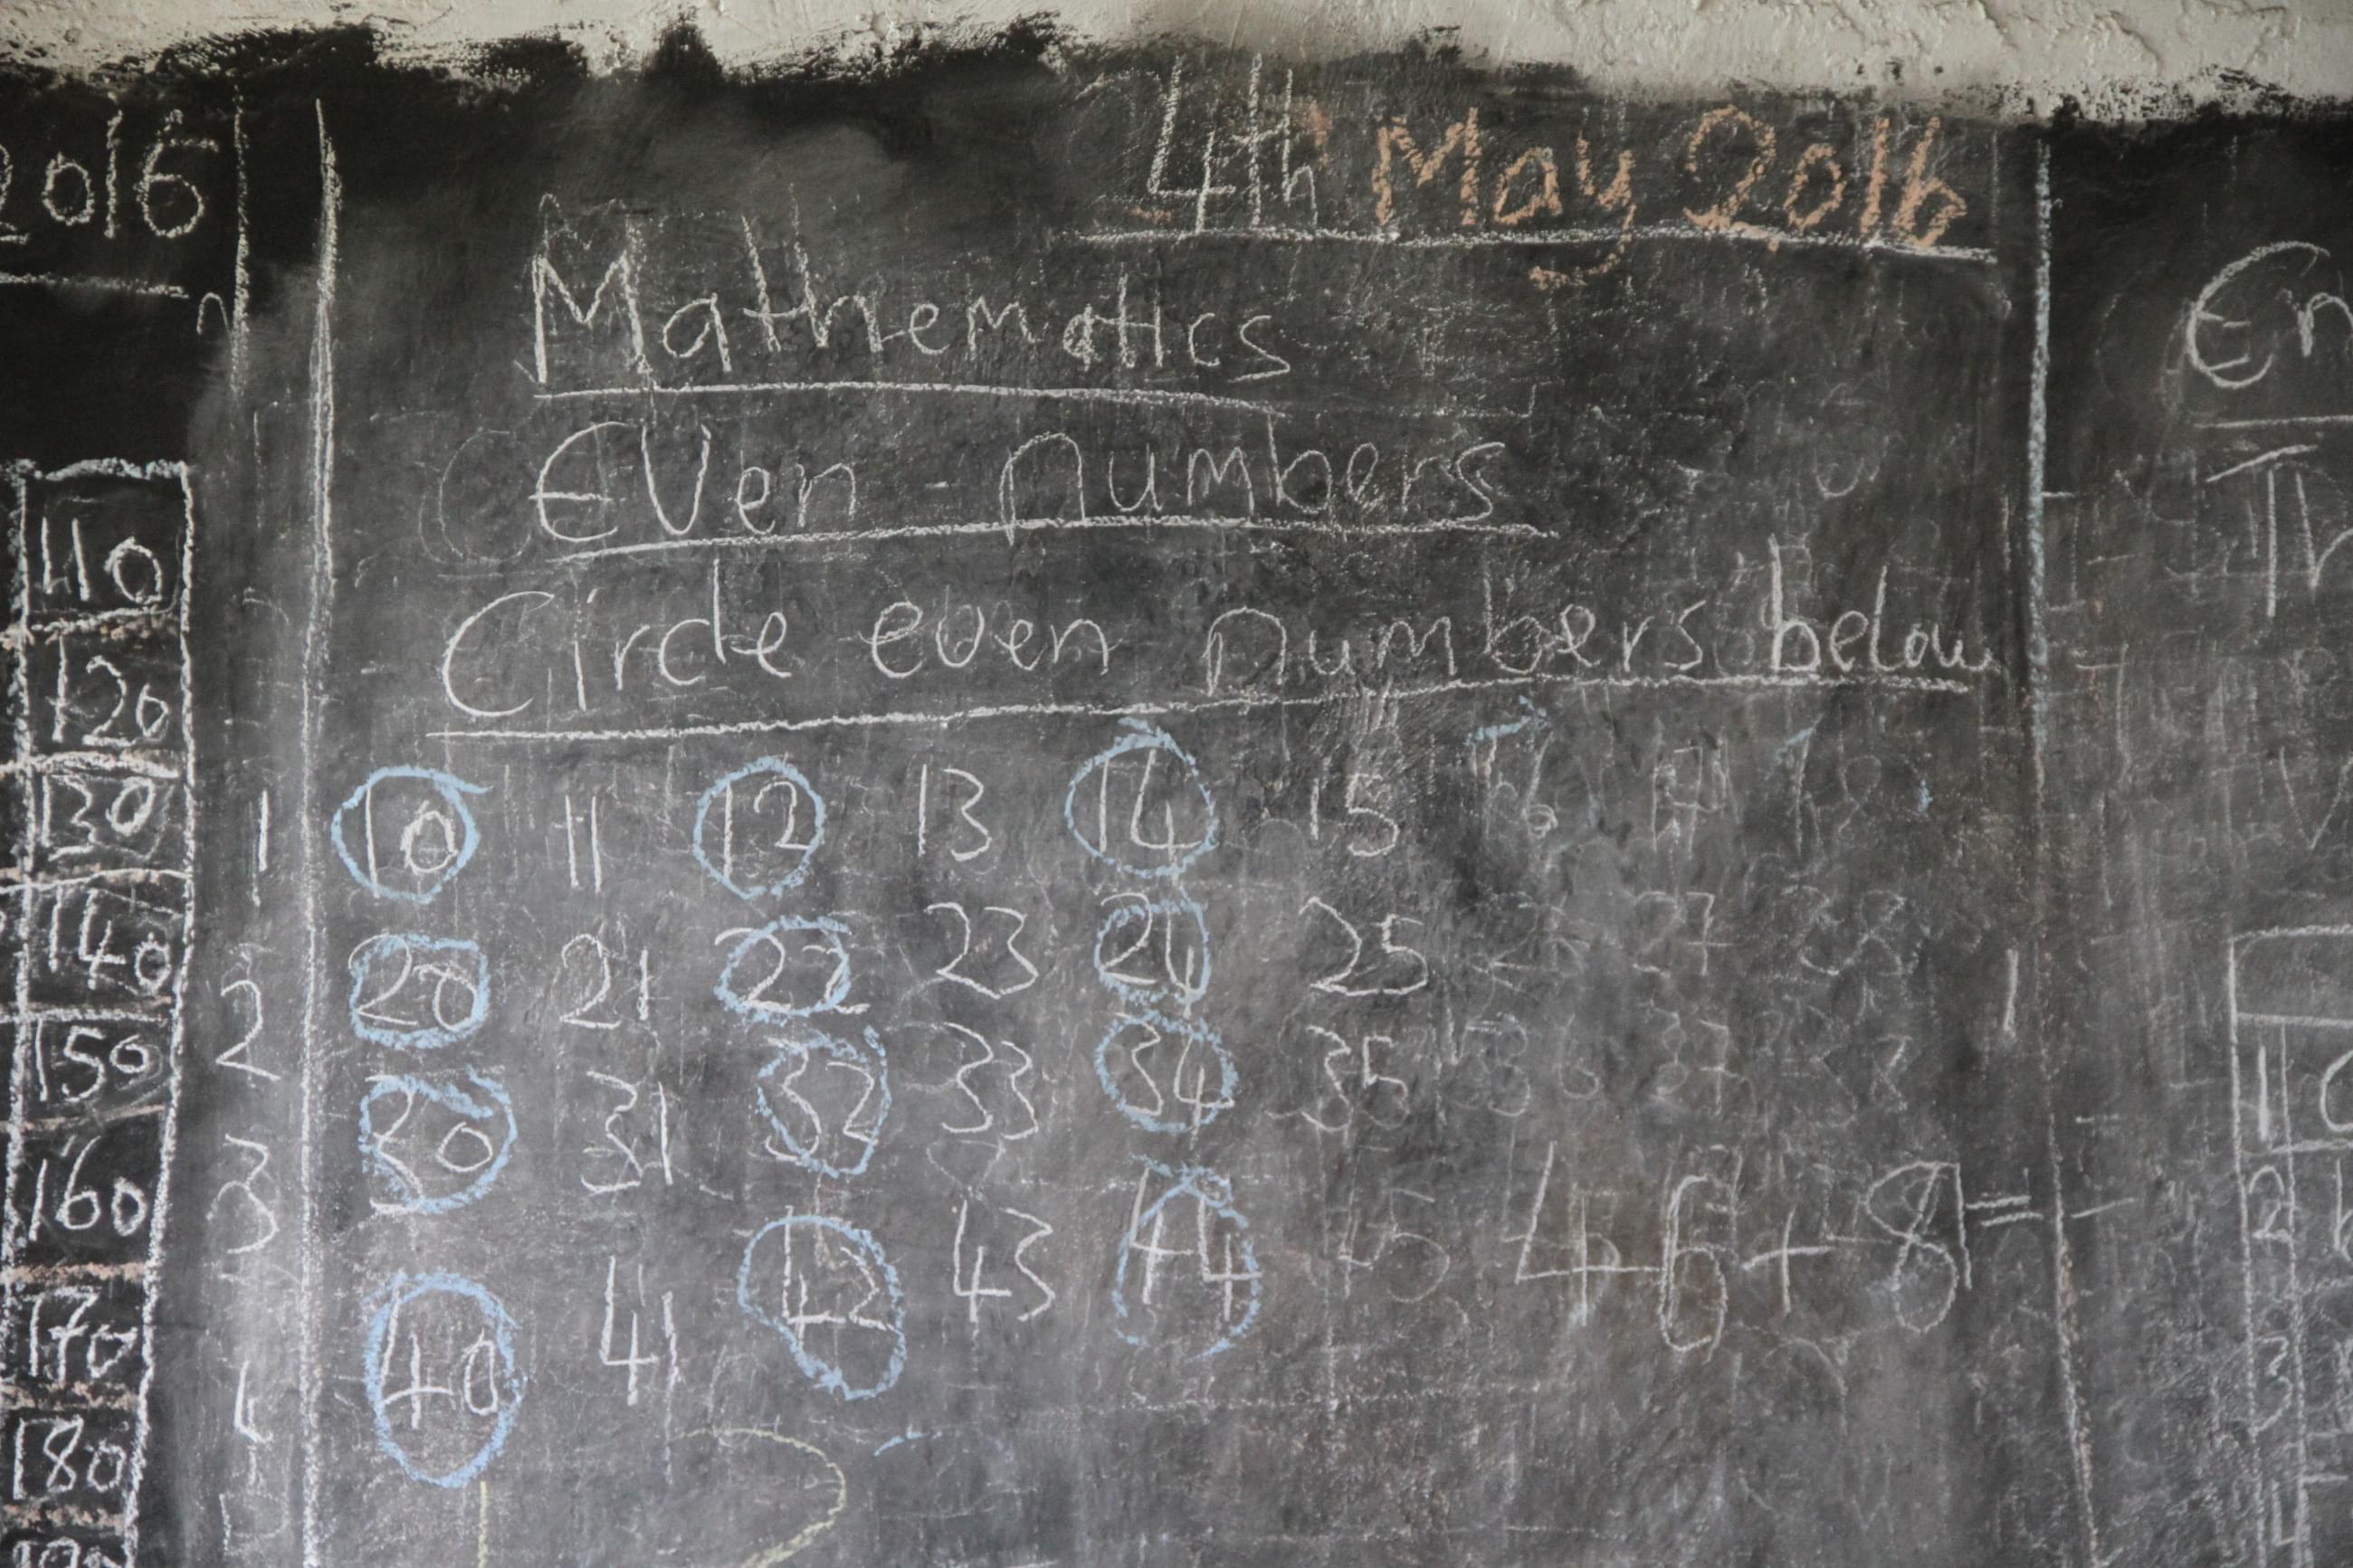 2016
110
120
130
140
150
160
170
180
4th May 2016
Mathematics
Even numbers
Circle even numbers below
1 10 11 12 13 14 15 16
2 20 21 22 23 24 25 27 28
3 30 31 32 33 34 35 36 37
40 41 42 43 44 45
46+8=
En
1
2
3
4